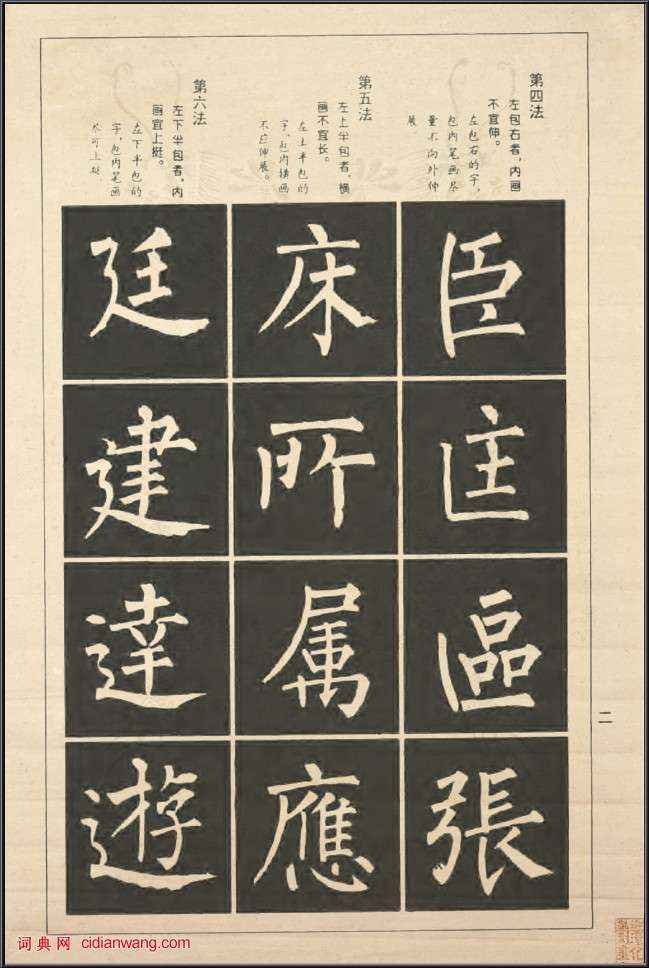 第四法
左包右者，内画
不宜伸。
左包右的字，
包内笔画尽
量不向外伸
展。
臣
匡
區
張
第五法
左上半包者，横
画不宜长。
左上半包的
字，包内横画
不应伸展。
床
所
属
應
第六法
左下半包者，内
画宜上挺。
左下半包的
字，包内笔画
尽可上挺
廷
建
達
遊
二
词典网 cidianwang.com